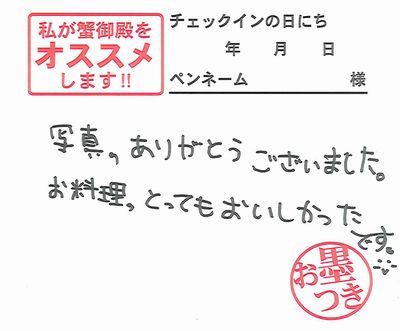 私が蟹御殿を
オススメ
します!!
チェックインの日にち
年 月 日
ペンネーム 様
写真、ありがとうございました。
お料理、とってもおいしかった
です。
お墨
つき